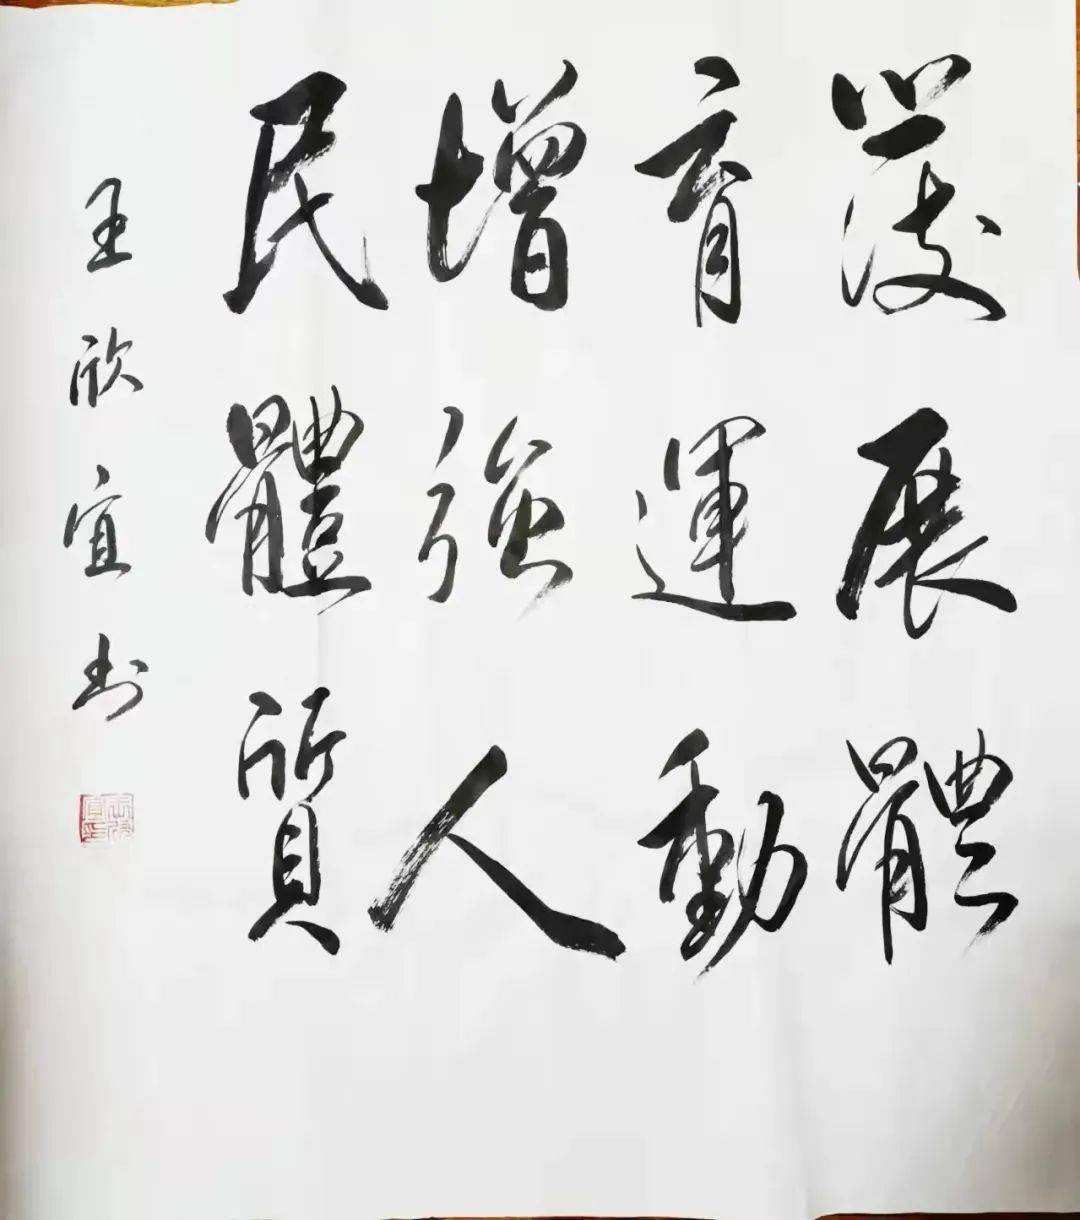 發展體
育運動
增強人
民體質
王欣宜书